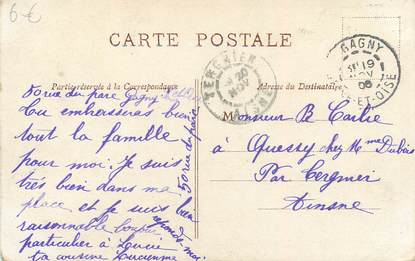 6-€
CARTE POSTALE
Partie réservée à la Correspondance
Adresse du Destinataire
GAGNY
19
NOV
05
ET-OISE
TERGNIER
20
NOV
AISNE
50 rue du parc Gagny
Tu embrasseras bien
tout la famille
pour moi. Je suis
très bien dans ma
place et je suis bien
raisonnable bonjour
particulier à Lucie
ta cousine Lucienne
50 rue du parc
réponds-moi
Monsieur B Carlie
à Quessy chez Mme Dubois
Par Tergnier
Aisne